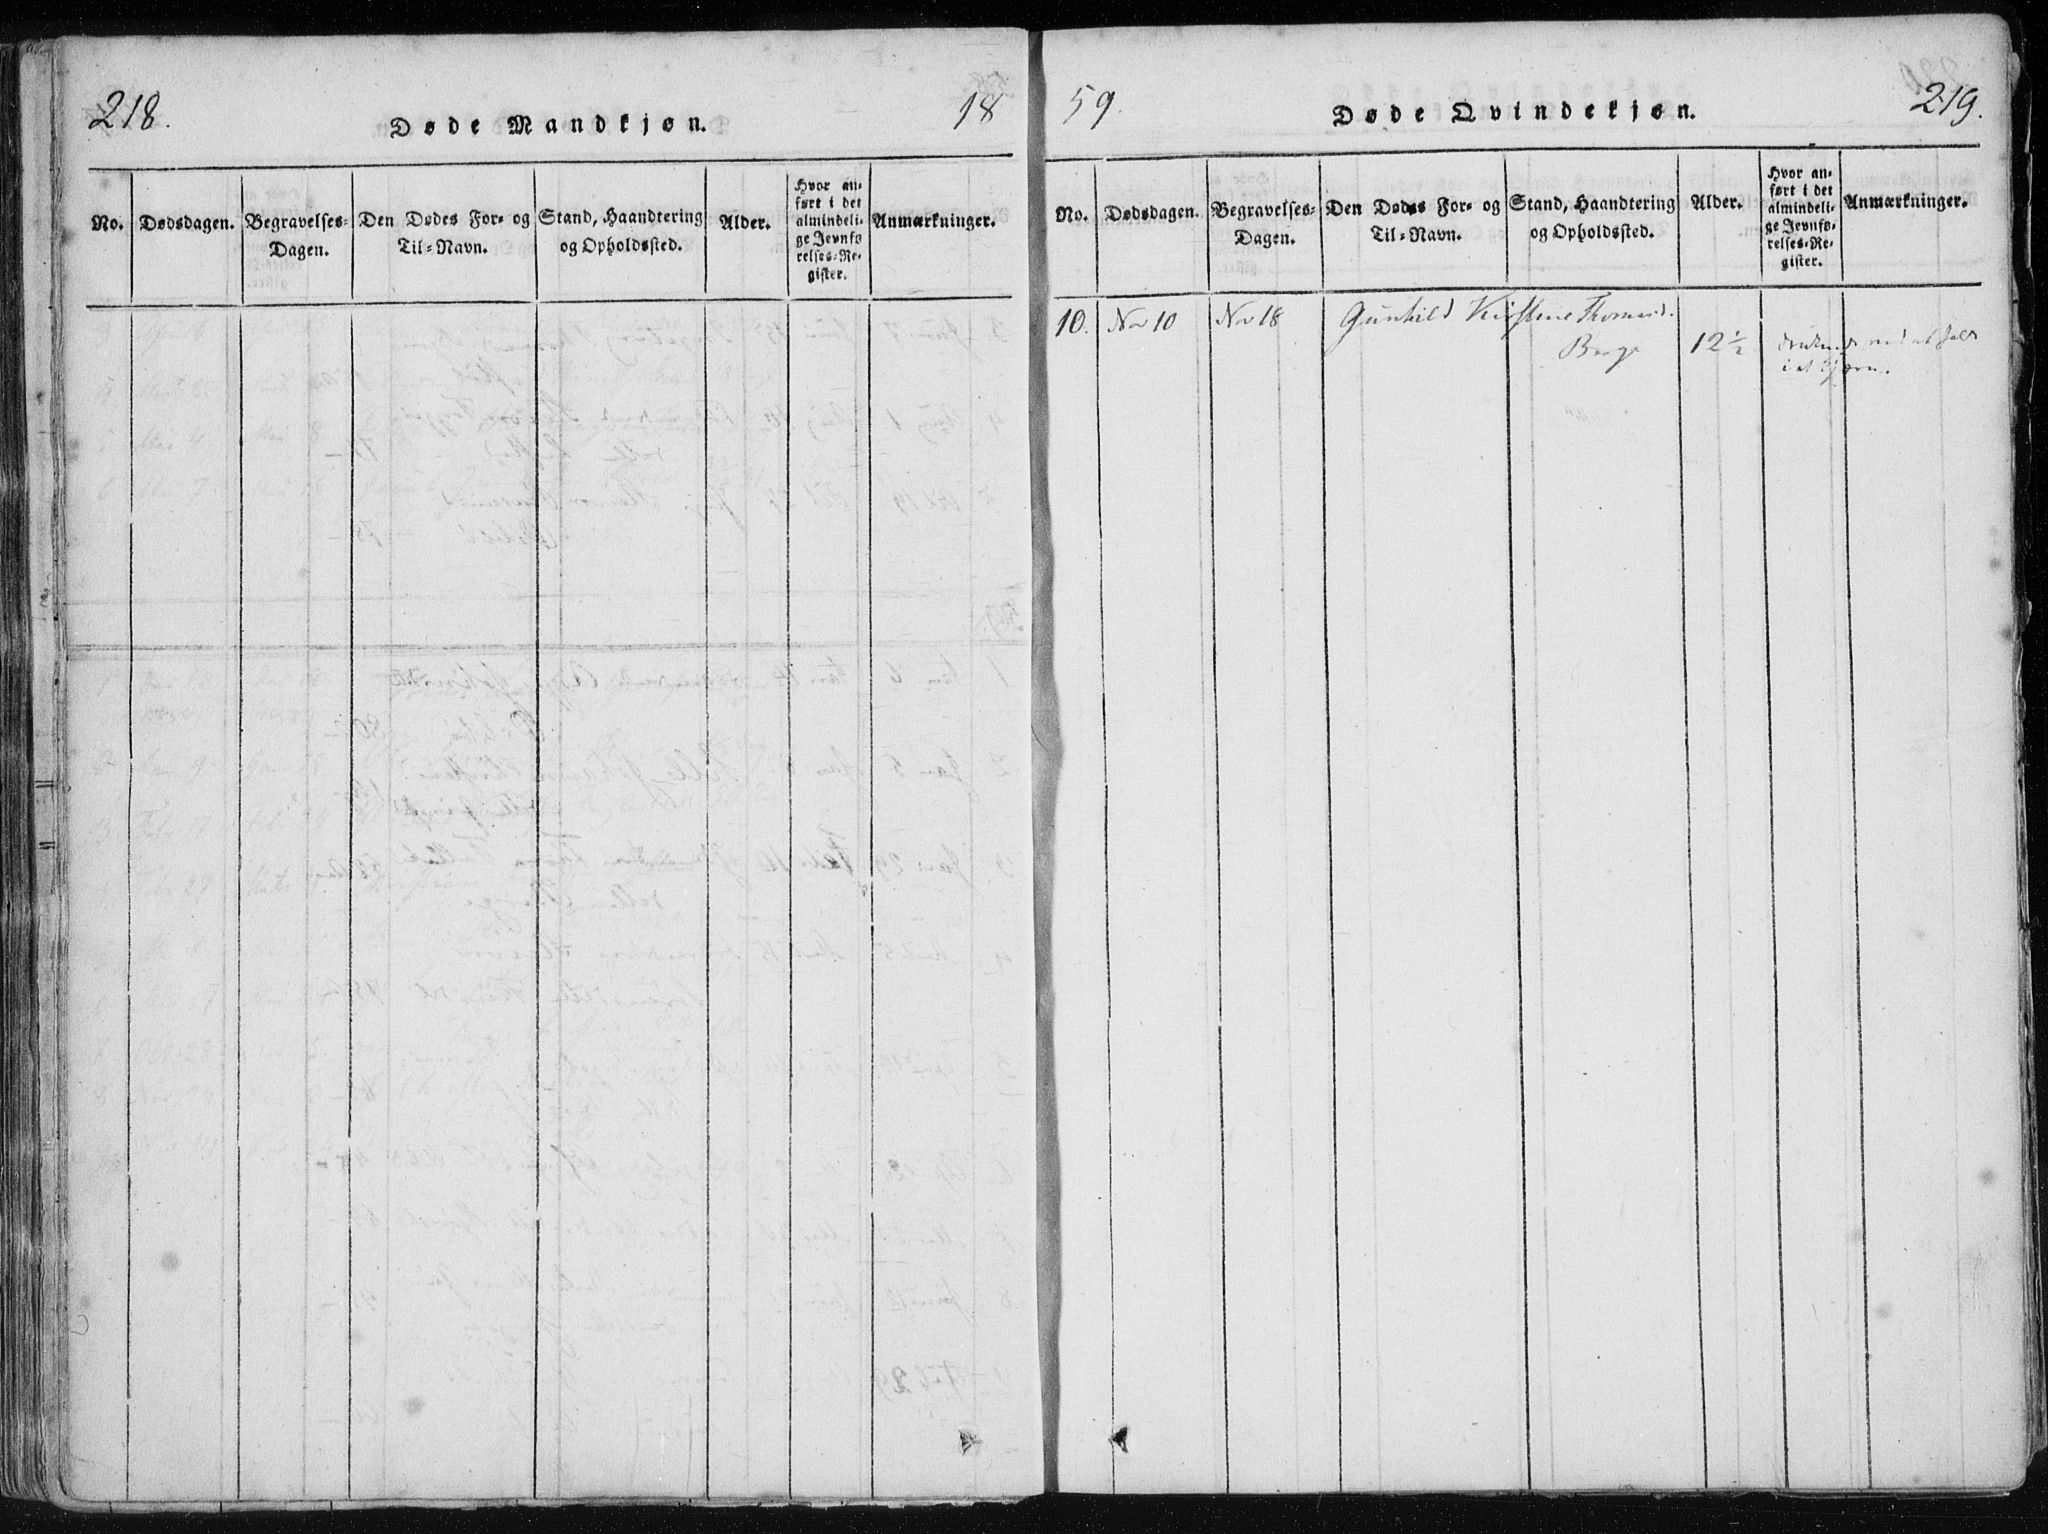 218.
Døde Mandkjøn.
18
No.
Dødsdagen.
Begravelses-
Dagen.
Den Dødes For- og
Til-Navn.
Stand, Haandtering
og Opholdssted.
Alder.
Hvor an-
ført i det
almindeli-
ge Jevnfø-
relses-Re-
gister.
Anmærkninger.
59.
Døde Qvindekjøn.
219.
No.
Dødsdagen.
Begravelses-
Dagen.
Den Dødes For- og
Til-Navn.
Stand, Haandtering
og Opholdssted.
Alder.
Hvor an-
ført i det
almindeli-
ge Jevnfø-
relses-Re-
gister.
Anmærkninger.
10. Nov 10 Nov 18 Gunhild Kirstine Thomasd.
Borge 12 ½ ved at fald
i et Tjern.